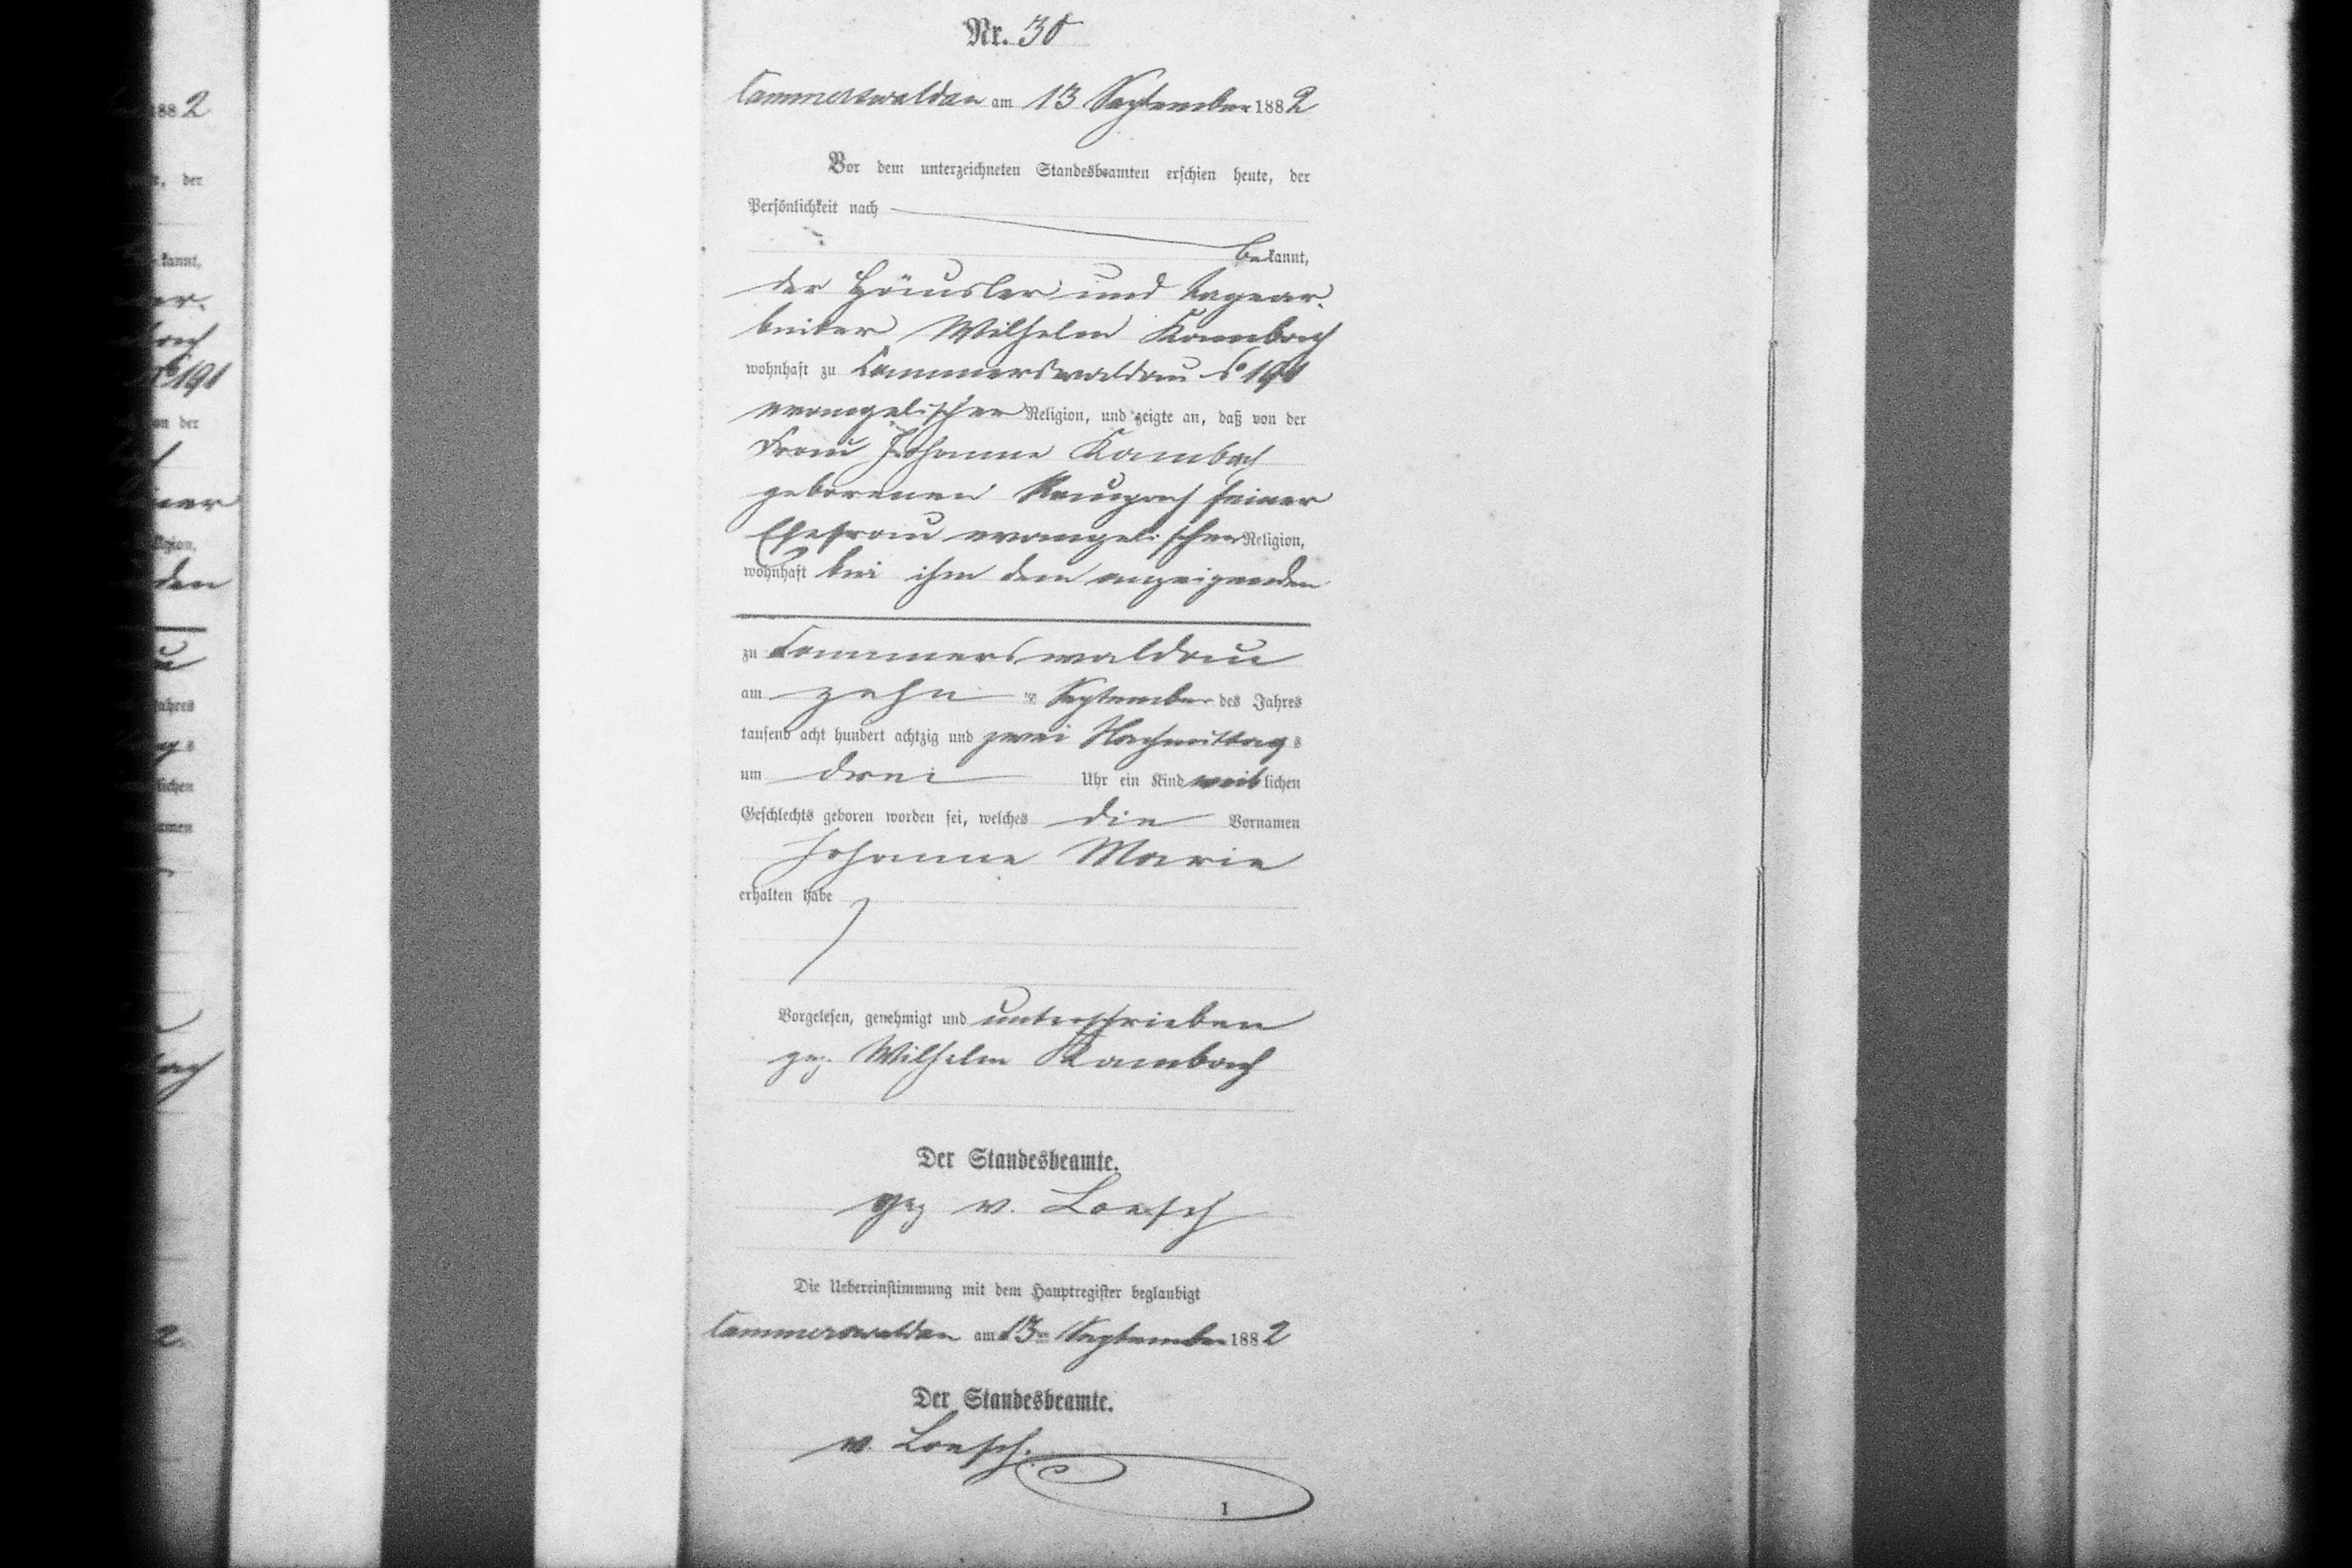 Nr. 30
Cammerswaldau am 13 September 1882
Vor dem unterzeichneten Standesbeamten erschien heute, der
Persönlichkeit nach
bekannt,
der Häusler und Tagear-
beiter Wilhelm Kambach
wohnhaft zu Cammerswaldau
evangelischer Religion, und zeigte an, daß von der
Frau Johanne Kambach
geborenen seiner
Ehefrau evangelischer Religion,
wohnhaft bei ihm dem anzeigenden
zu Cammerswaldau
am zehn ten September des Jahres
tausend acht hundert achtzig und zwei Nachmittags
um drei Uhr ein Kind weiblichen
Geschlechts geboren worden sei, welches die Vornamen
Johanne Marie
erhalten habe
Vorgelesen, genehmigt und unterschrieben
gez. Wilhelm Kambach
Der Standesbeamte.
gez v. Loesch
Die Uebereinstimmung mit dem Hauptregister beglaubigt
Cammerswaldau am 13ten September 1882
Der Standesbeamte.
v. Loesch.
1